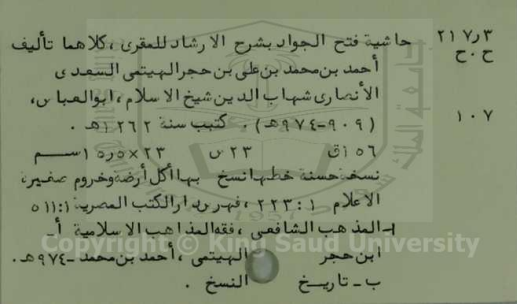 ٢١٧٫٣ حاشية فتح الجواد بشرح الارشاد للمقرى، كلاهما تأليف
ح٠ح أحمد بن محمد بن على بن حجر الهيتمى السعدى
الأنصارى شهاب الدين شيخ الاسلام، ابو العباس،
١٠٧ (٩٠٩-٩٧٤هـ). كتبت سنة ١٢٦٢هـ.
١٥٦ق ٢٣س ٢٣×١٥٫٥سم
نسخة حسنة خطها نسخ بها أكل أرضة وخروم صغير،
الاعلام ١: ٢٢٣، فهرس دار الكتب المصرية ١: ٥١١
١- المذهب الشافعى، فقه المذاهب الاسلامية أ-
ابن حجر الهيتمى، أحمد بن محمد - ٩٧٤هـ.
ب- تاريخ النسخ.
Copyright © King Saud University
1957